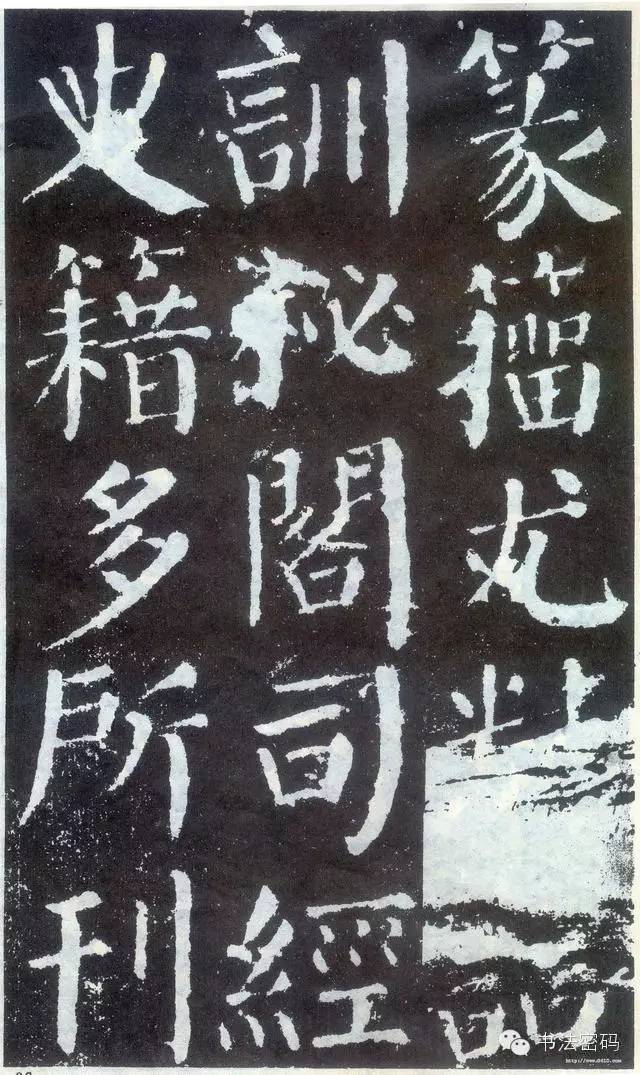 篆籀尤
訓秘閣司經
史籍多所刊
书法密码